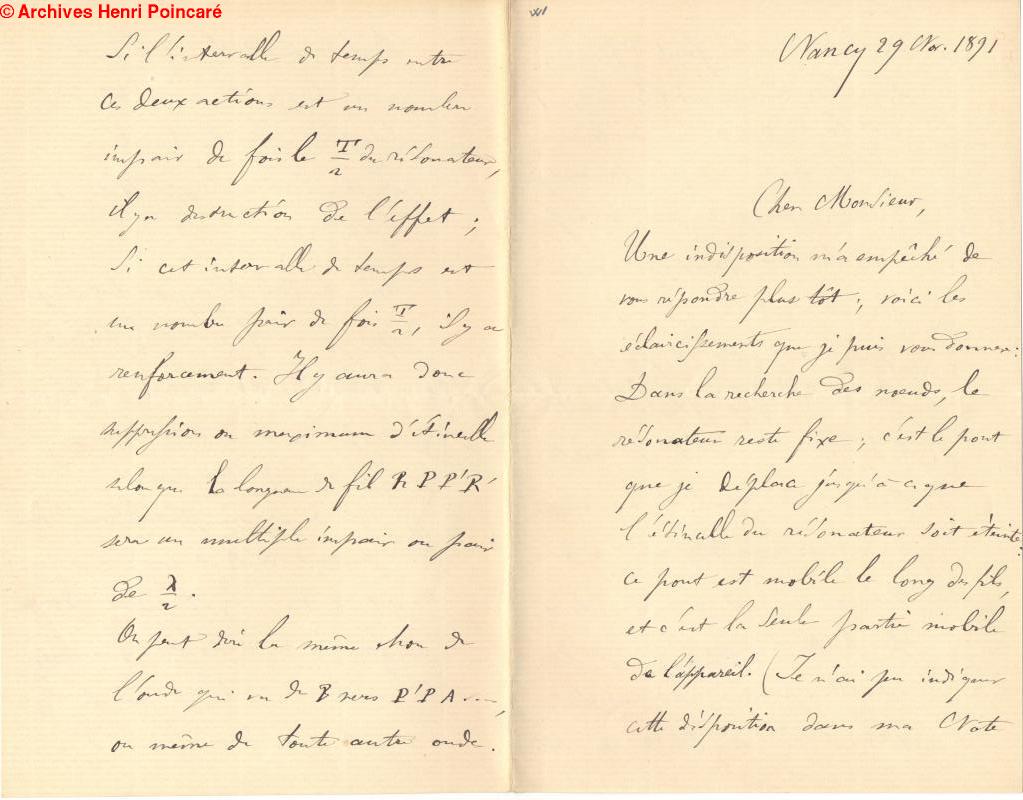 © Archives Henri Poincaré
Nancy 29 Nov. 1891
Cher Monsieur,
Une indisposition m'a empêché de
vous répondre plus tôt ; voici les
éclaircissements que je puis vous donner :
Dans la recherche des nœuds, le
résonateur reste fixe ; c'est le pont
que je déplace jusqu'à ce que
l'étincelle du résonateur soit éteinte :
ce pont est mobile le long des fils,
et c'est la seule partie mobile
de l'appareil. (Je n'ai pu indiquer
cette disposition dans ma Note
Si l'intervalle de temps entre
ces deux actions est un nombre
impair de fois le T/2 du résonateur,
il y a destruction de l'effet ;
Si cet intervalle de temps est
un nombre pair de fois T/2, il y a
renforcement. Il y aura donc
suppression ou maximum d'étincelle
selon que la longueur de fil R P P' R'
sera un multiple impair ou pair
de λ/2.
On peut dire la même chose de
l'onde qui va de B vers P' P A ....,
ou même de toute autre onde.